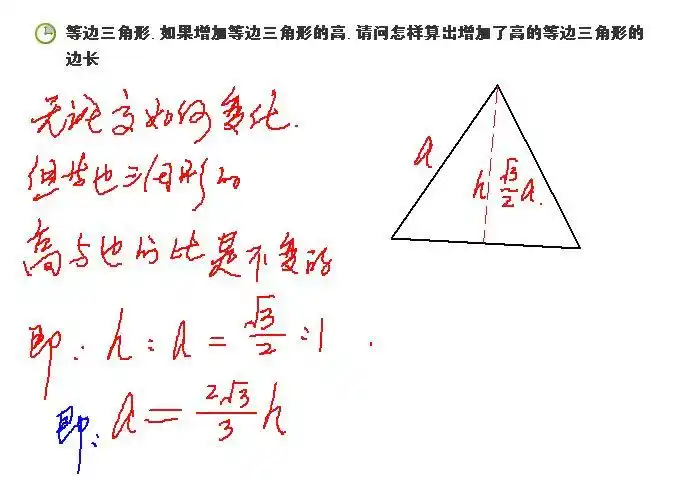 等边三角形. 如果增加等边三角形的高. 请问怎样算出增加了高的等边三角形的
边长
无论高如何变化.
但等边三角形的
高与边的比是不变的
即: h : a = √3/2 : 1 .
即: a = 2√3/3 h
a
h √3/2 a.